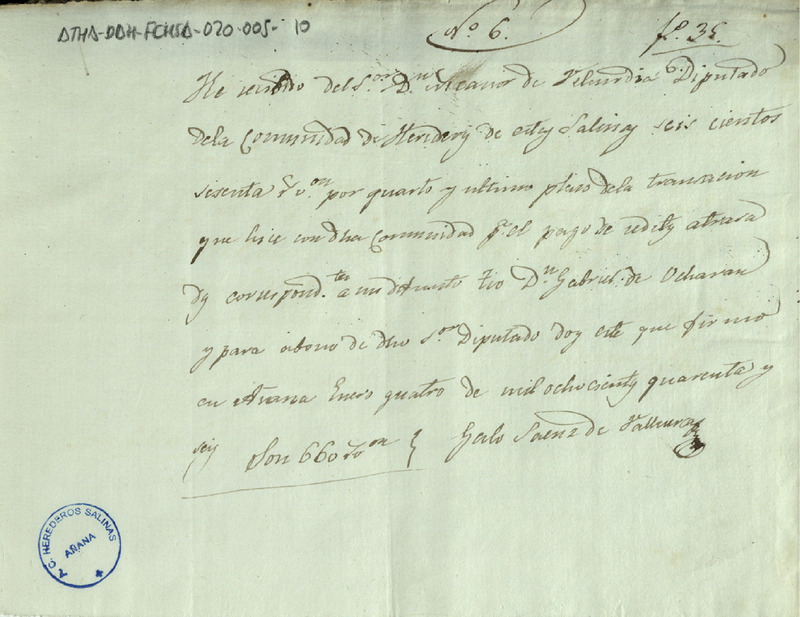 ATHA-DAH-FCHSA-020-005-10
Nº 6.
fº 35.
He recibido del S.or D.n Nicanor de Velundia Diputado
dela Comunidad de Hereder.s de estas Salinas seis cientos
sesenta r.s v.on por quarto y ultimo plazo dela transacion
que hice con dha Comunidad p.a el pago de redits atrasa
dos correspond.tes a mi difunto tio D.n Gabriel de Ocharan
y para abono de dho S.or Diputado doy este que firmo
en Añana Enero quatro de mil ochocients quarenta y
seis Son 660 r.s v.on Galo Saenz de
A. C. HEREDEROS SALINAS
AÑANA